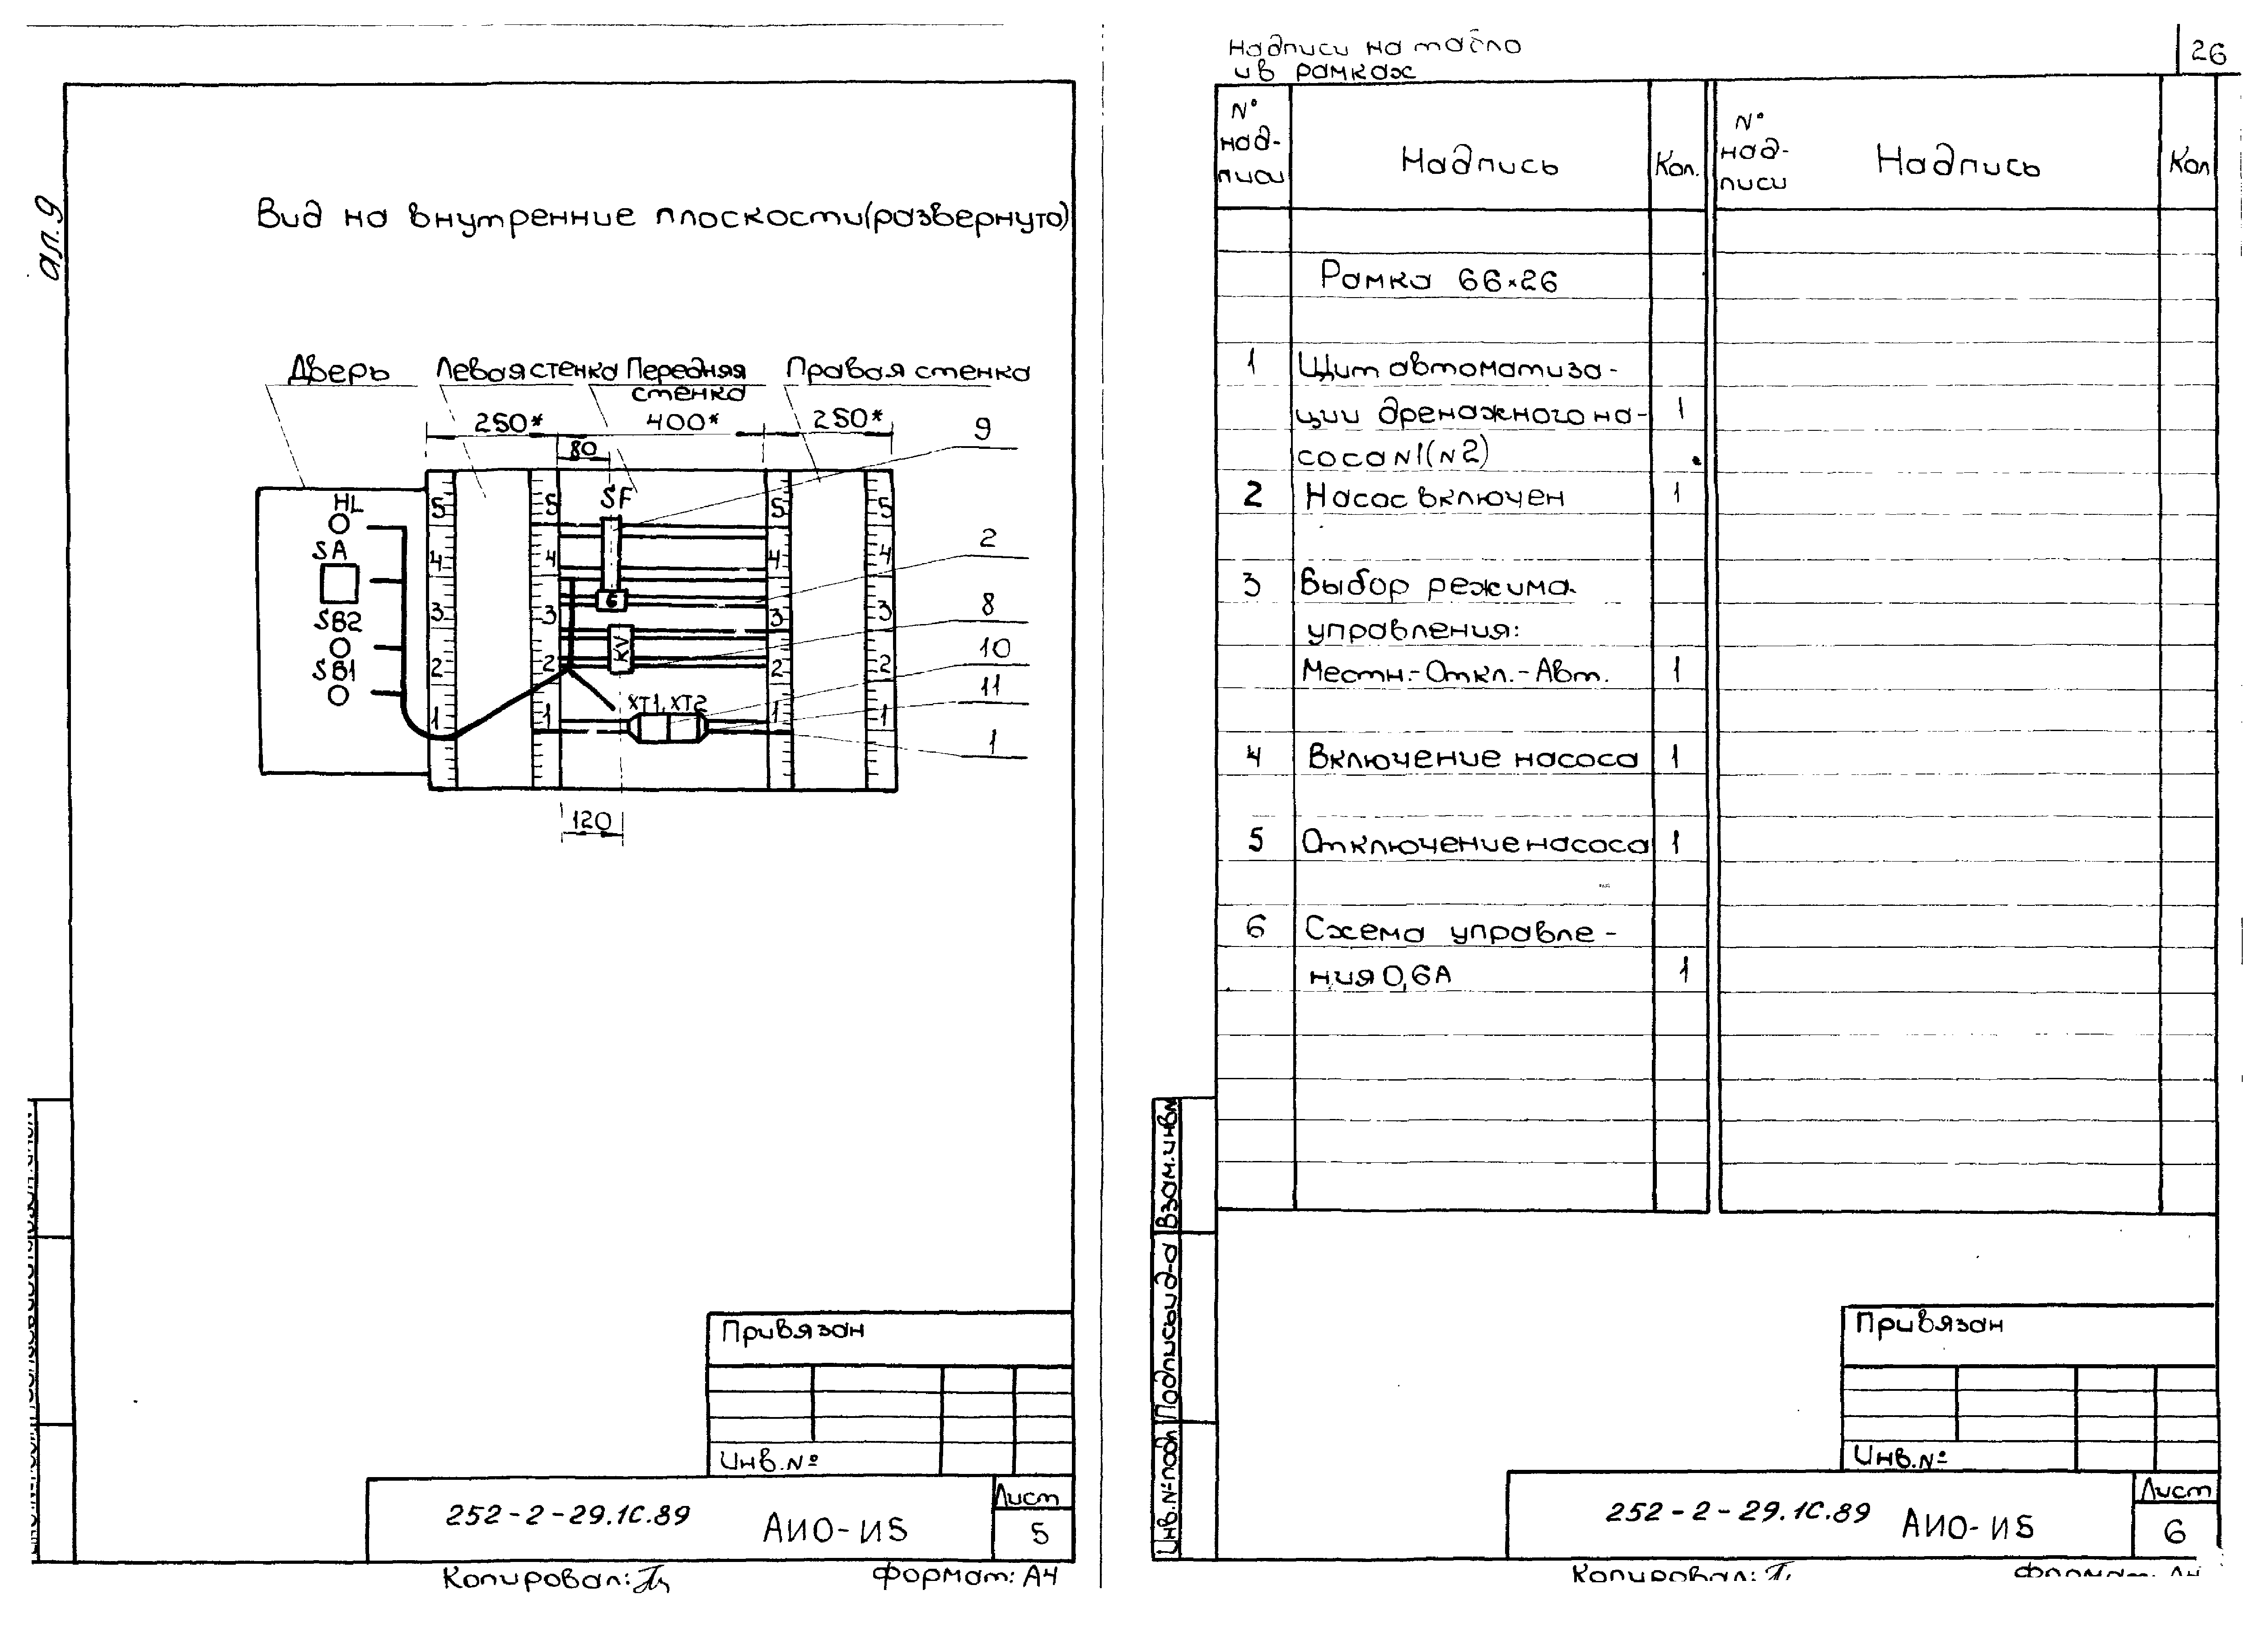 ал. 9
Вид на внутренние плоскости (развернуто)
Дверь
Левая стенка
Передняя
стенка
Правая стенка
250*
400*
250*
80
9
HL
SA
SB2
SB1
SF
5
5
5
5
4
4
4
4
3
3
3
3
2
2
2
2
1
1
1
1
6
KV
XT1, XT2
2
8
10
11
1
120
Привязан
Инв. №
252-2-29.1С.89
АИО-И5
Лист
5
Копировал:
Формат: А4
26
Надписи на табло
и в рамках
№ над-писи
Надпись
Кол.
№ над-писи
Надпись
Кол
Рамка 66×26
1 Щит автоматиза-
ции дренажного на- 1
соса N1(N2)
2 Насос включен 1
3 Выбор режима
управления:
Местн.-Откл.-Авт. 1
4 Включение насоса 1
5 Отключение насоса 1
6 Схема управле-
ния 0,6А 1
Взам. инв N
Подпись и д-а
Инв. № подл
Привязан
Инв. №
252-2-29.1С.89
АИО-И5
Лист
6
Копировал:
Формат: А4